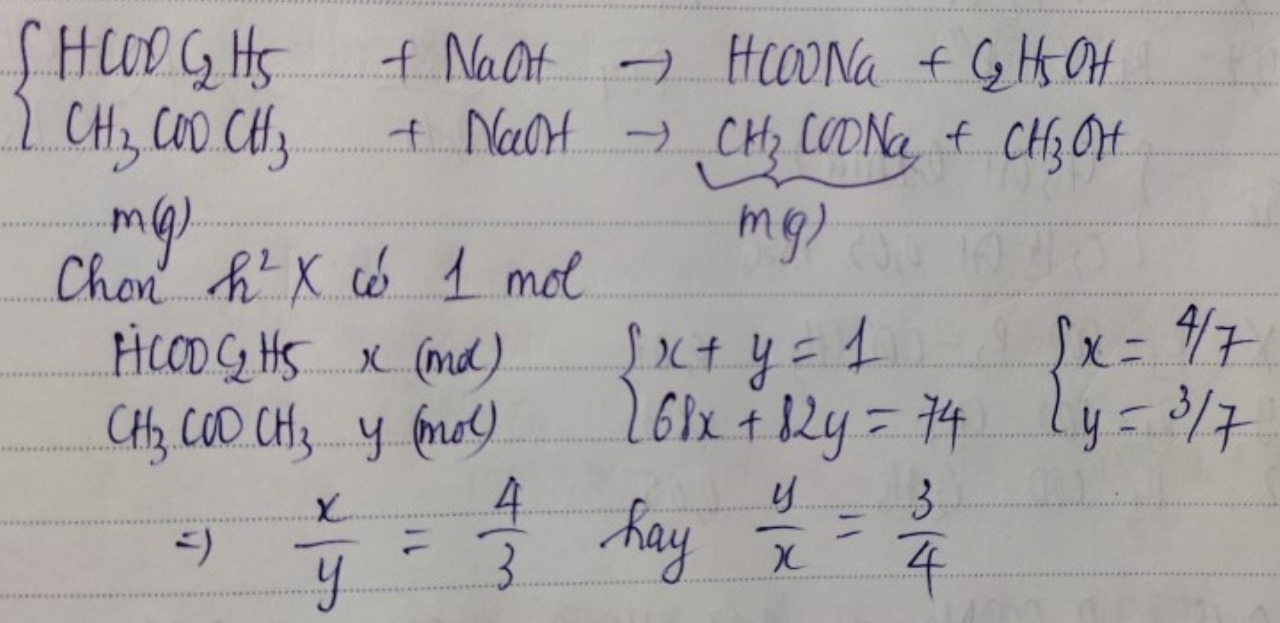 { HCOOC₂H₅ + NaOH → HCOONa + C₂H₅OH
CH₃COOCH₃ + NaOH → CH₃COONa + CH₃OH
m(g) m(g)
Chọn h² X có 1 mol
HCOOC₂H₅ x (mol) { x + y = 1 { x = 4/7
CH₃COOCH₃ y (mol) 68x + 82y = 74 y = 3/7
=> x/y = 4/3 hay y/x = 3/4